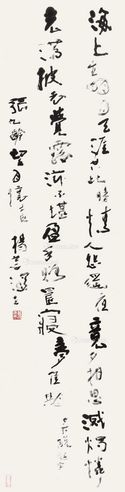 海上生明月天涯共此時情人怨遙夜竟夕起相思滅燭憐
光滿披衣覺露滋不堪盈手贈還寢夢佳期
張九齡望月懷遠 楊